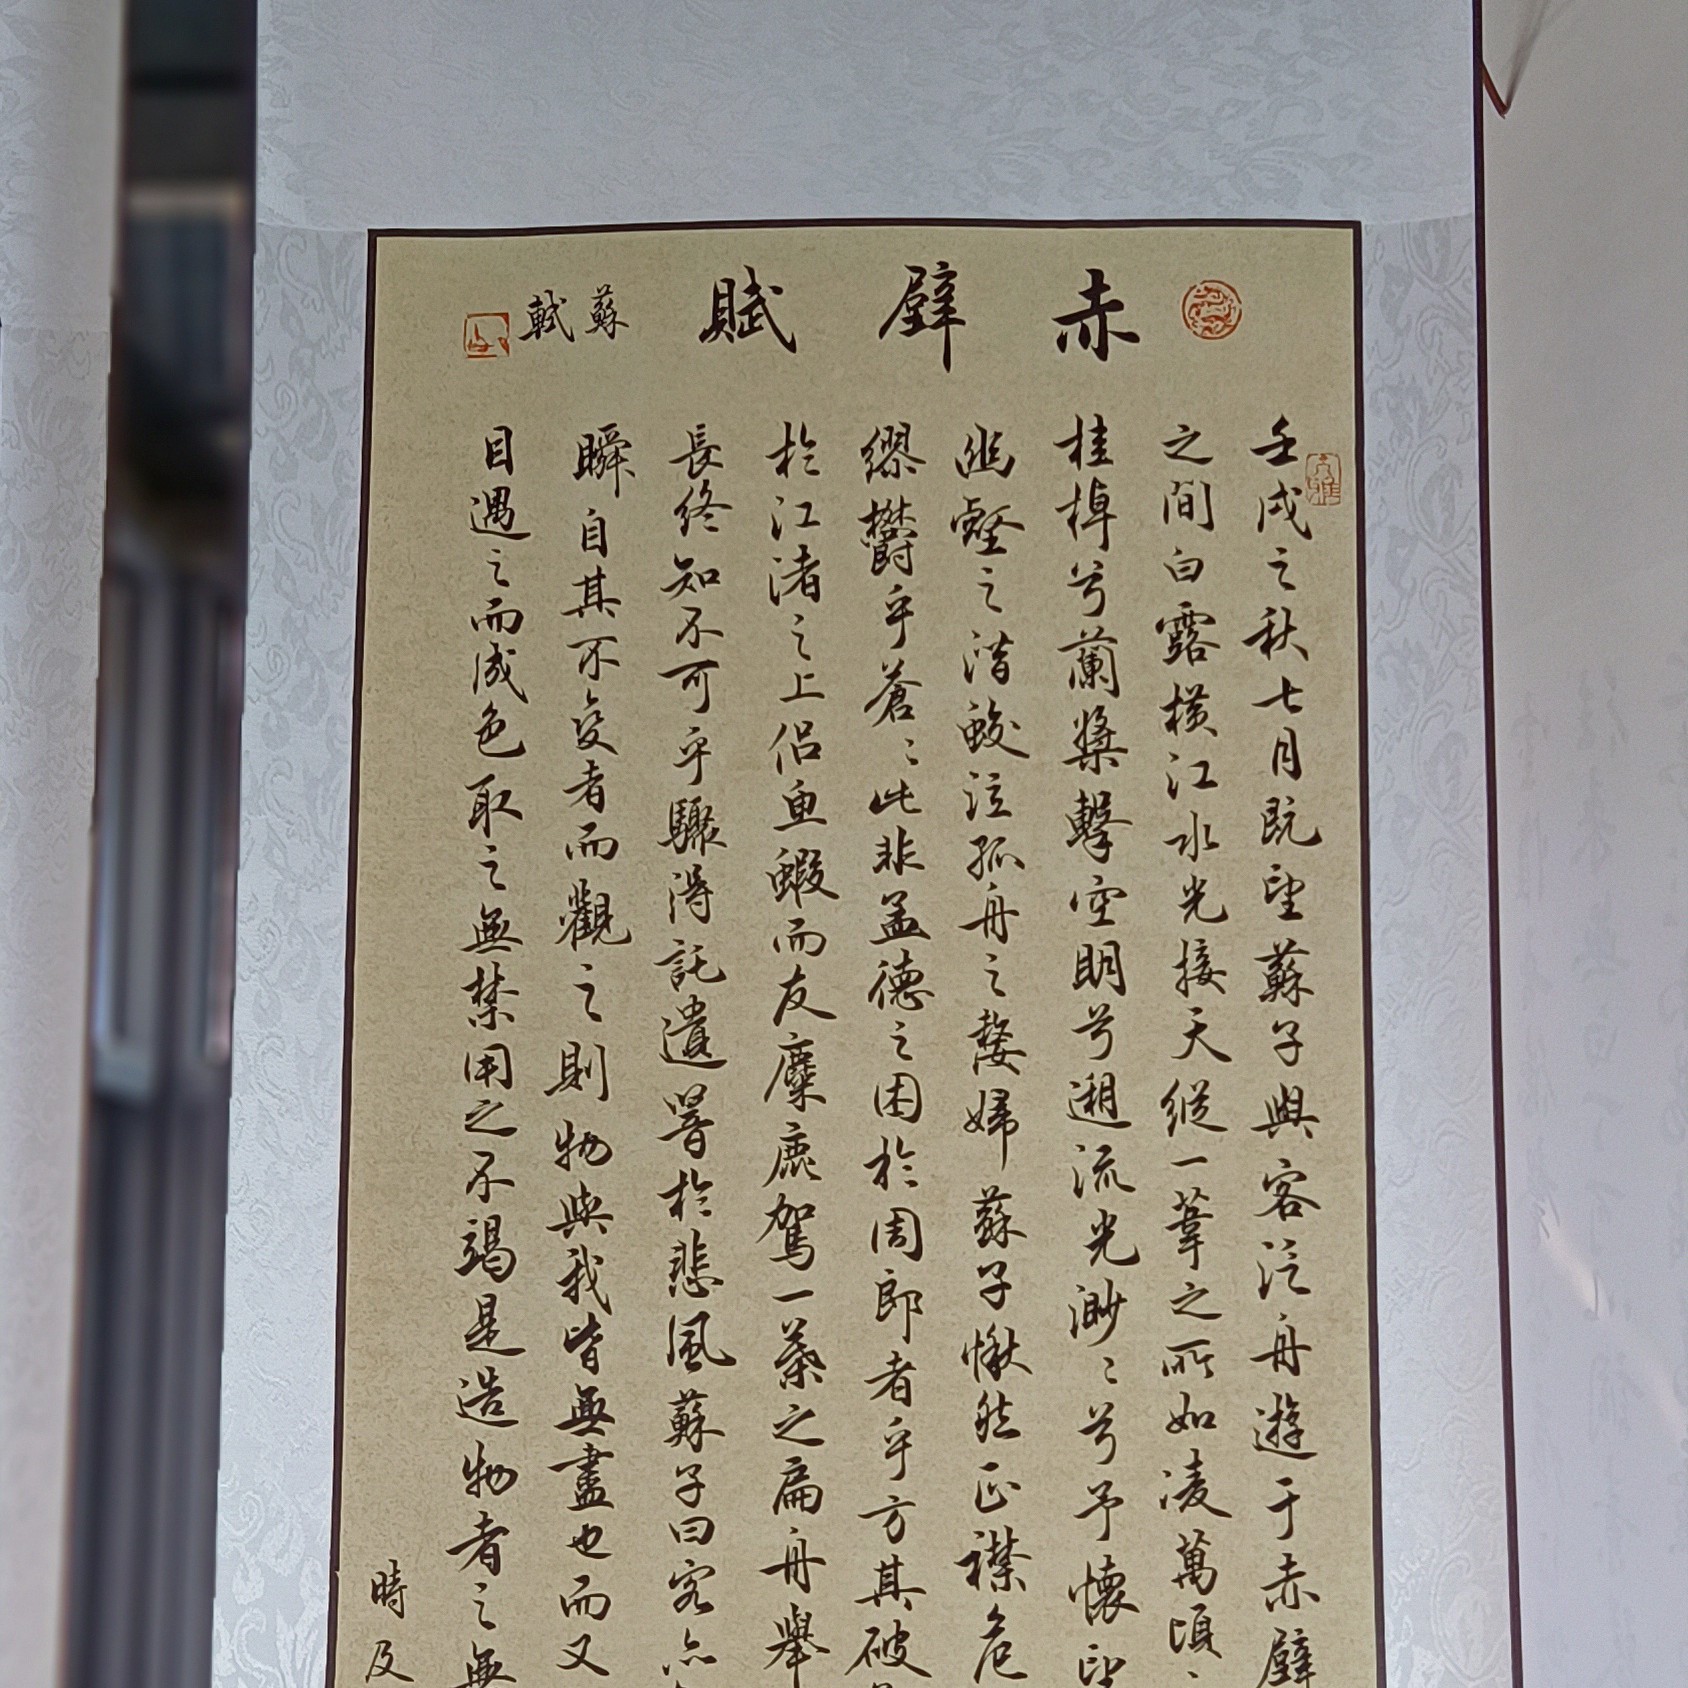 赤壁賦 蘇軾
壬戌之秋七月既望蘇子與客泛舟遊于赤壁
之間白露橫江水光接天縱一葦之所如凌萬頃
桂棹兮蘭槳擊空明兮遡流光渺〻兮予懷望
幽壑之潛蛟泣孤舟之嫠婦蘇子愀然正襟危
繆欝乎蒼〻此非孟德之困於周郎者乎方其破
於江渚之上侶魚蝦而友麋鹿駕一葉之扁舟舉
長終知不可乎驟得託遺響於悲風蘇子曰客亦
瞬自其不變者而觀之則物與我皆無盡也而又
目遇之而成色取之無禁用之不竭是造物者之無
時及